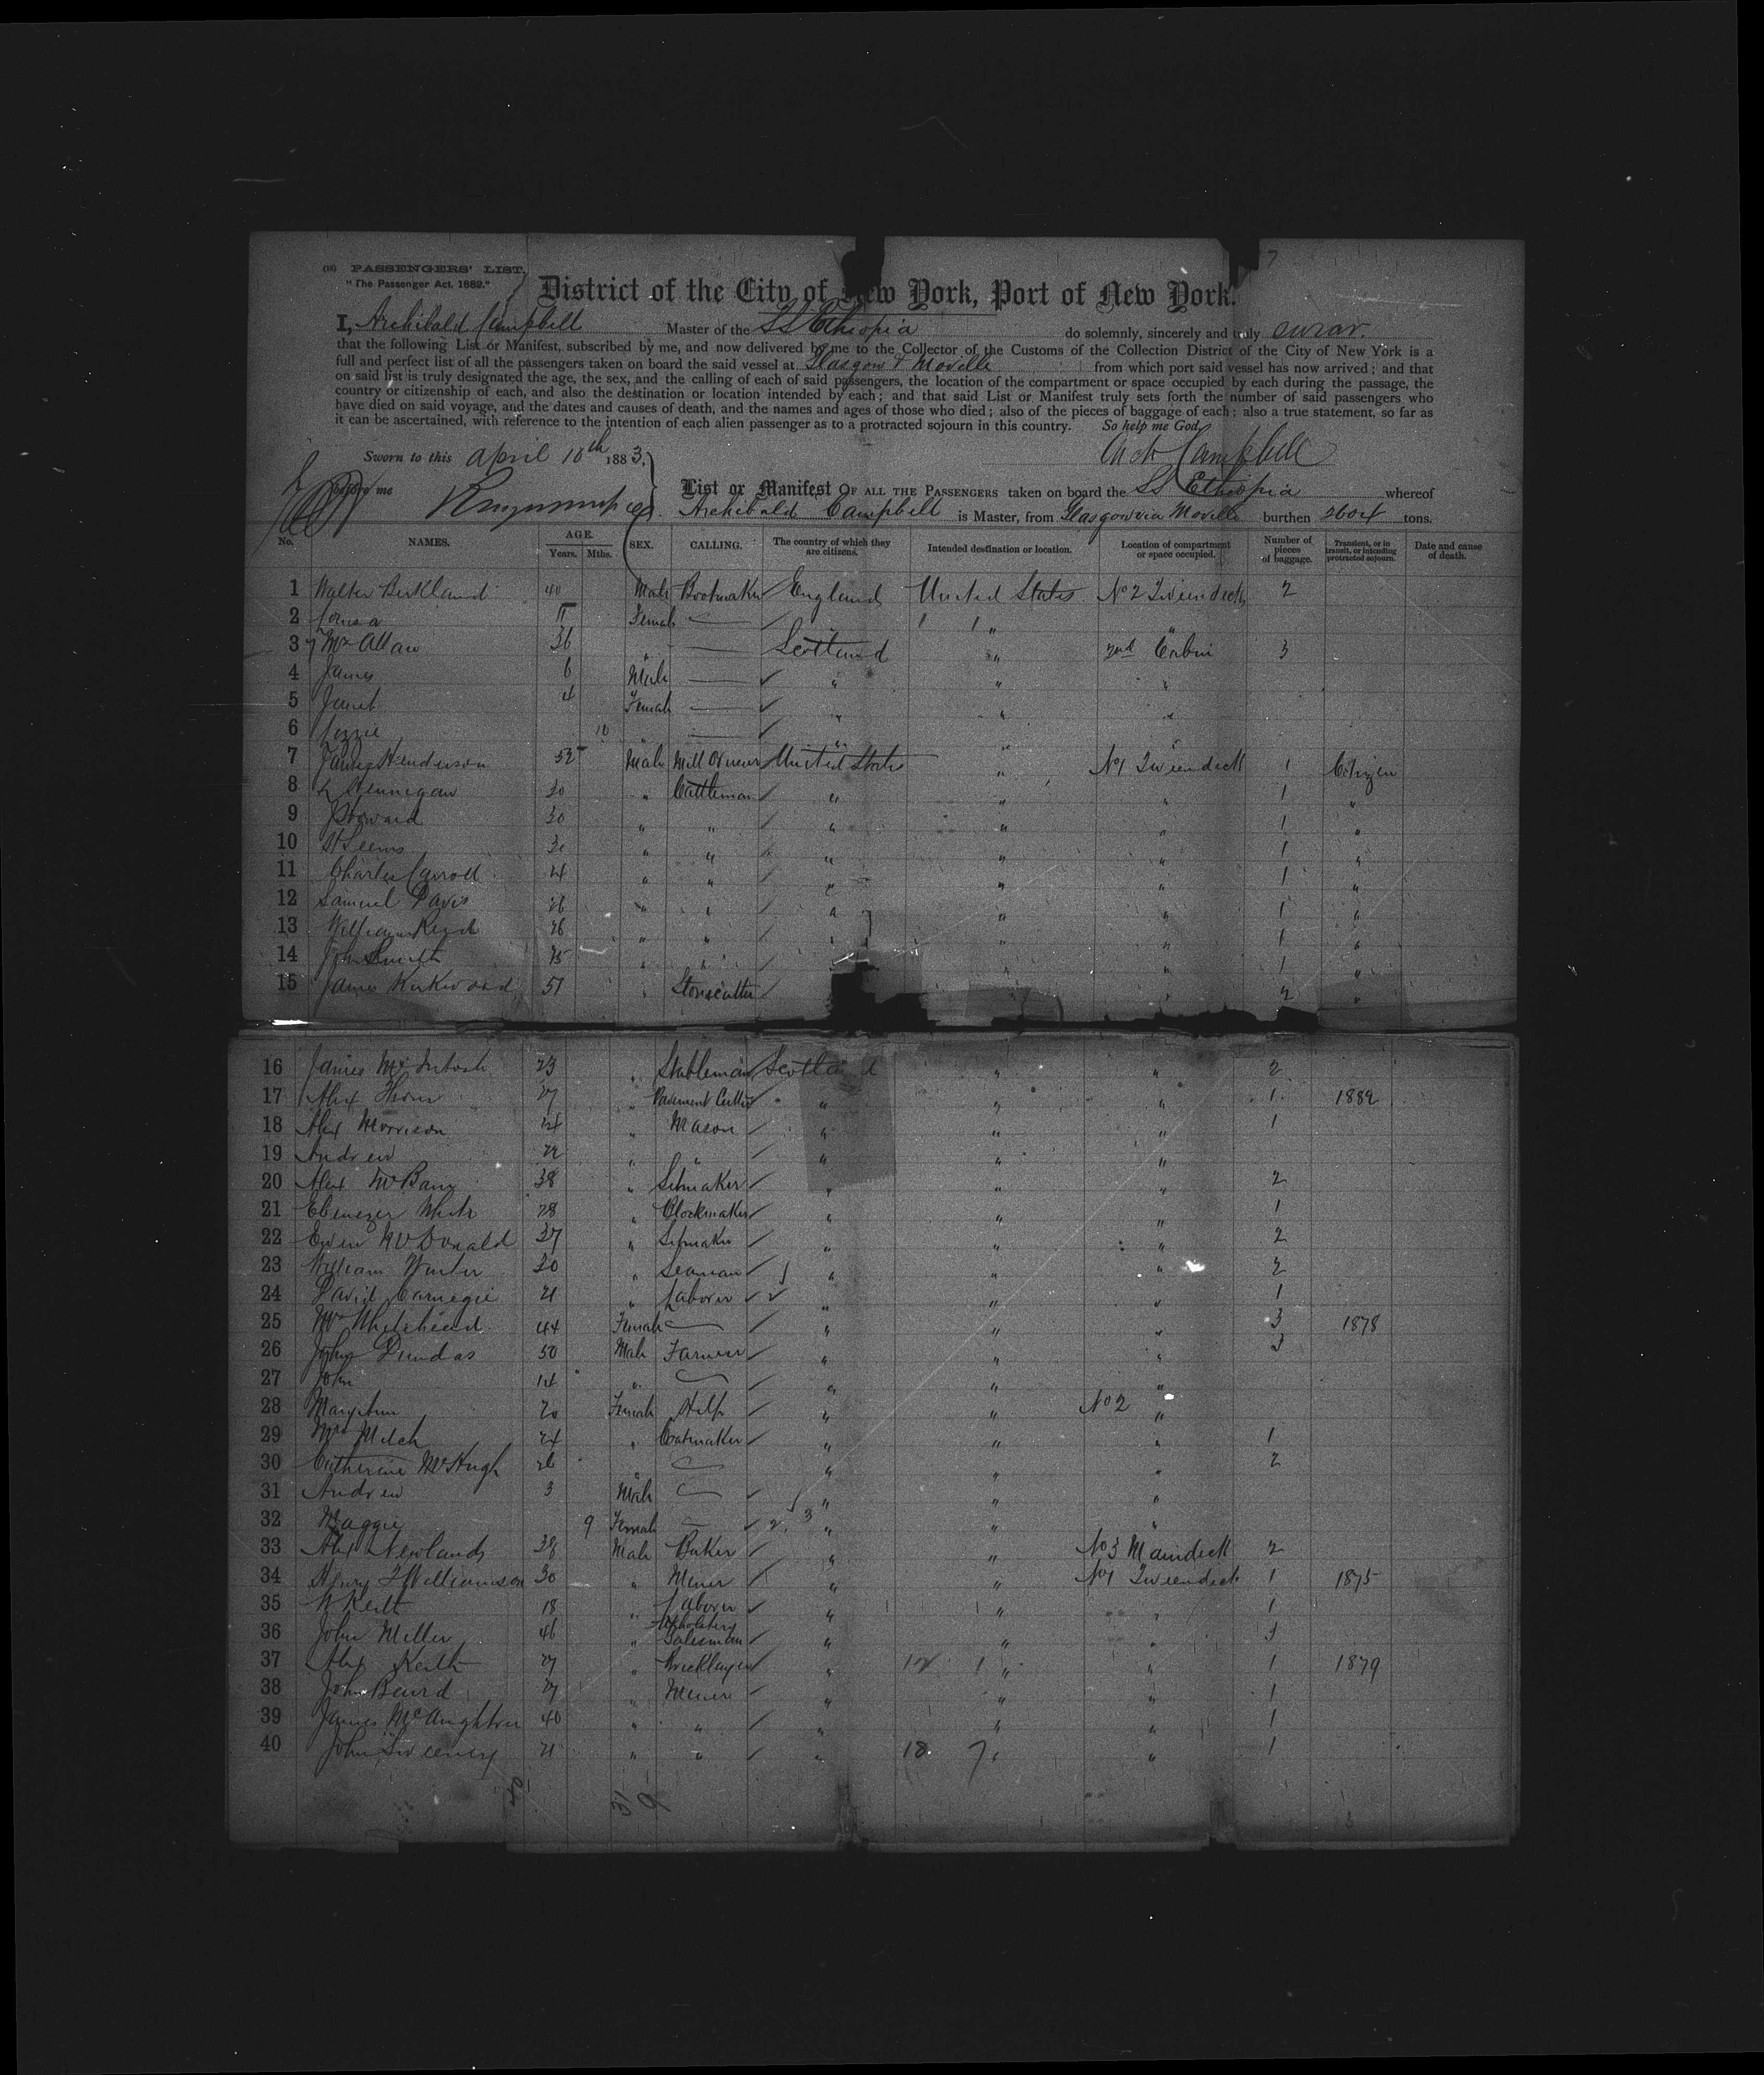 (18) PASSENGERS' LIST.
"The Passenger Act, 1882."
District of the City of New York, Port of New York.
I, Archibald Campbell Master of the SS Ethiopia do solemnly, sincerely and truly swear
that the following List or Manifest, subscribed by me, and now delivered by me to the Collector of the Customs of the Collection District of the City of New York is a
full and perfect list of all the passengers taken on board the said vessel at Glasgow & Moville from which port said vessel has now arrived; and that
on said list is truly designated the age, the sex, and the calling of each of said passengers, the location of the compartment or space occupied by each during the passage, the
country or citizenship of each, and also the destination or location intended by each; and that said List or Manifest truly sets forth the number of said passengers who
have died on said voyage, and the dates and causes of death, and the names and ages of those who died; also of the pieces of baggage of each; also a true statement, so far as
it can be ascertained, with reference to the intention of each alien passenger as to a protracted sojourn in this country. So help me God
Sworn to this April 10th 1883, Arch Campbell
before me
List or Manifest OF ALL THE PASSENGERS taken on board the SS Ethiopia whereof
Archibald Campbell is Master, from Glasgow via Moville burthen 2604 tons.
No. NAMES. AGE. Years. Mths. SEX. CALLING. The country of which they are citizens. Intended destination or location. Location of compartment or space occupied. Number of pieces of baggage. Transient, or in transit, or intending protracted sojourn. Date and cause of death.
1 Walter Birkland 40 Male Bootmaker England United States No 2 Tweendeck 2
2 Louisa 11 Female " "
3 Mrs Allan 36 " Scotland " 2nd Cabin 3
4 James 6 Male " " "
5 Janet 4 Female " " "
6 Lizzie 10 " " " "
7 James Henderson 52 Male Mill Owner United States " No 1 Tweendeck 1 Citizen
8 Hennegan 30 " Cattleman " " " 1 "
9 Howard 30 " " " " " 1 "
10 30 " " " " " 1 "
11 Charles Carroll 24 " " " " " 1 "
12 Samuel Davis 26 " " " " " 1 "
13 William Reid 26 " " " " " 1 "
14 John Smith " " " 1 "
15 James Kirkwood 51 " Stonecutter " 2 "
16 James McIntosh 23 " Stableman Scotland " " 2
17 Alex Thom 27 " Pavement Cutter " " " 1 1882
18 Alex Morrison 24 " Mason " " " 1
19 Andrew 22 " " " " "
20 Alex 38 " Setmaker " " " 2
21 Ebenezer White 28 " Clockmaker " " " 1
22 Ewen McDonald 37 " Setmaker " " " 2
23 William Winter 30 " Seaman " " " 2
24 David Carnegie 21 " Laborer " " " 1
25 Mrs Whitehead 44 Female " " " 3 1878
26 John Dundas 50 Male Farmer " " " 3
27 John 14 " " " "
28 Mary Ann 20 Female Help " " No 2 "
29 Mrs 24 " Coatmaker " " " 1
30 Catherine McHugh 26 " " " " 2
31 Andrew 3 Male " " "
32 Maggie 9 Female " " "
33 Alex Newlands 38 Male Baker " " No 3 Maindeck 2
34 Henry Williamson 30 " Miner " " No 1 Tweendeck 1 1875
35 W Keith 18 " Laborer " " " 1
36 John Miller 46 " Upholstery Salesman " " " 3
37 Alex Keith 27 " Bricklayer " " " 1 1879
38 John Beard 27 " Miner " " " 1
39 James McAughtrie 40 " " " " " 1
40 John Sweeney 21 " " " 18 7 " " 1
31 9